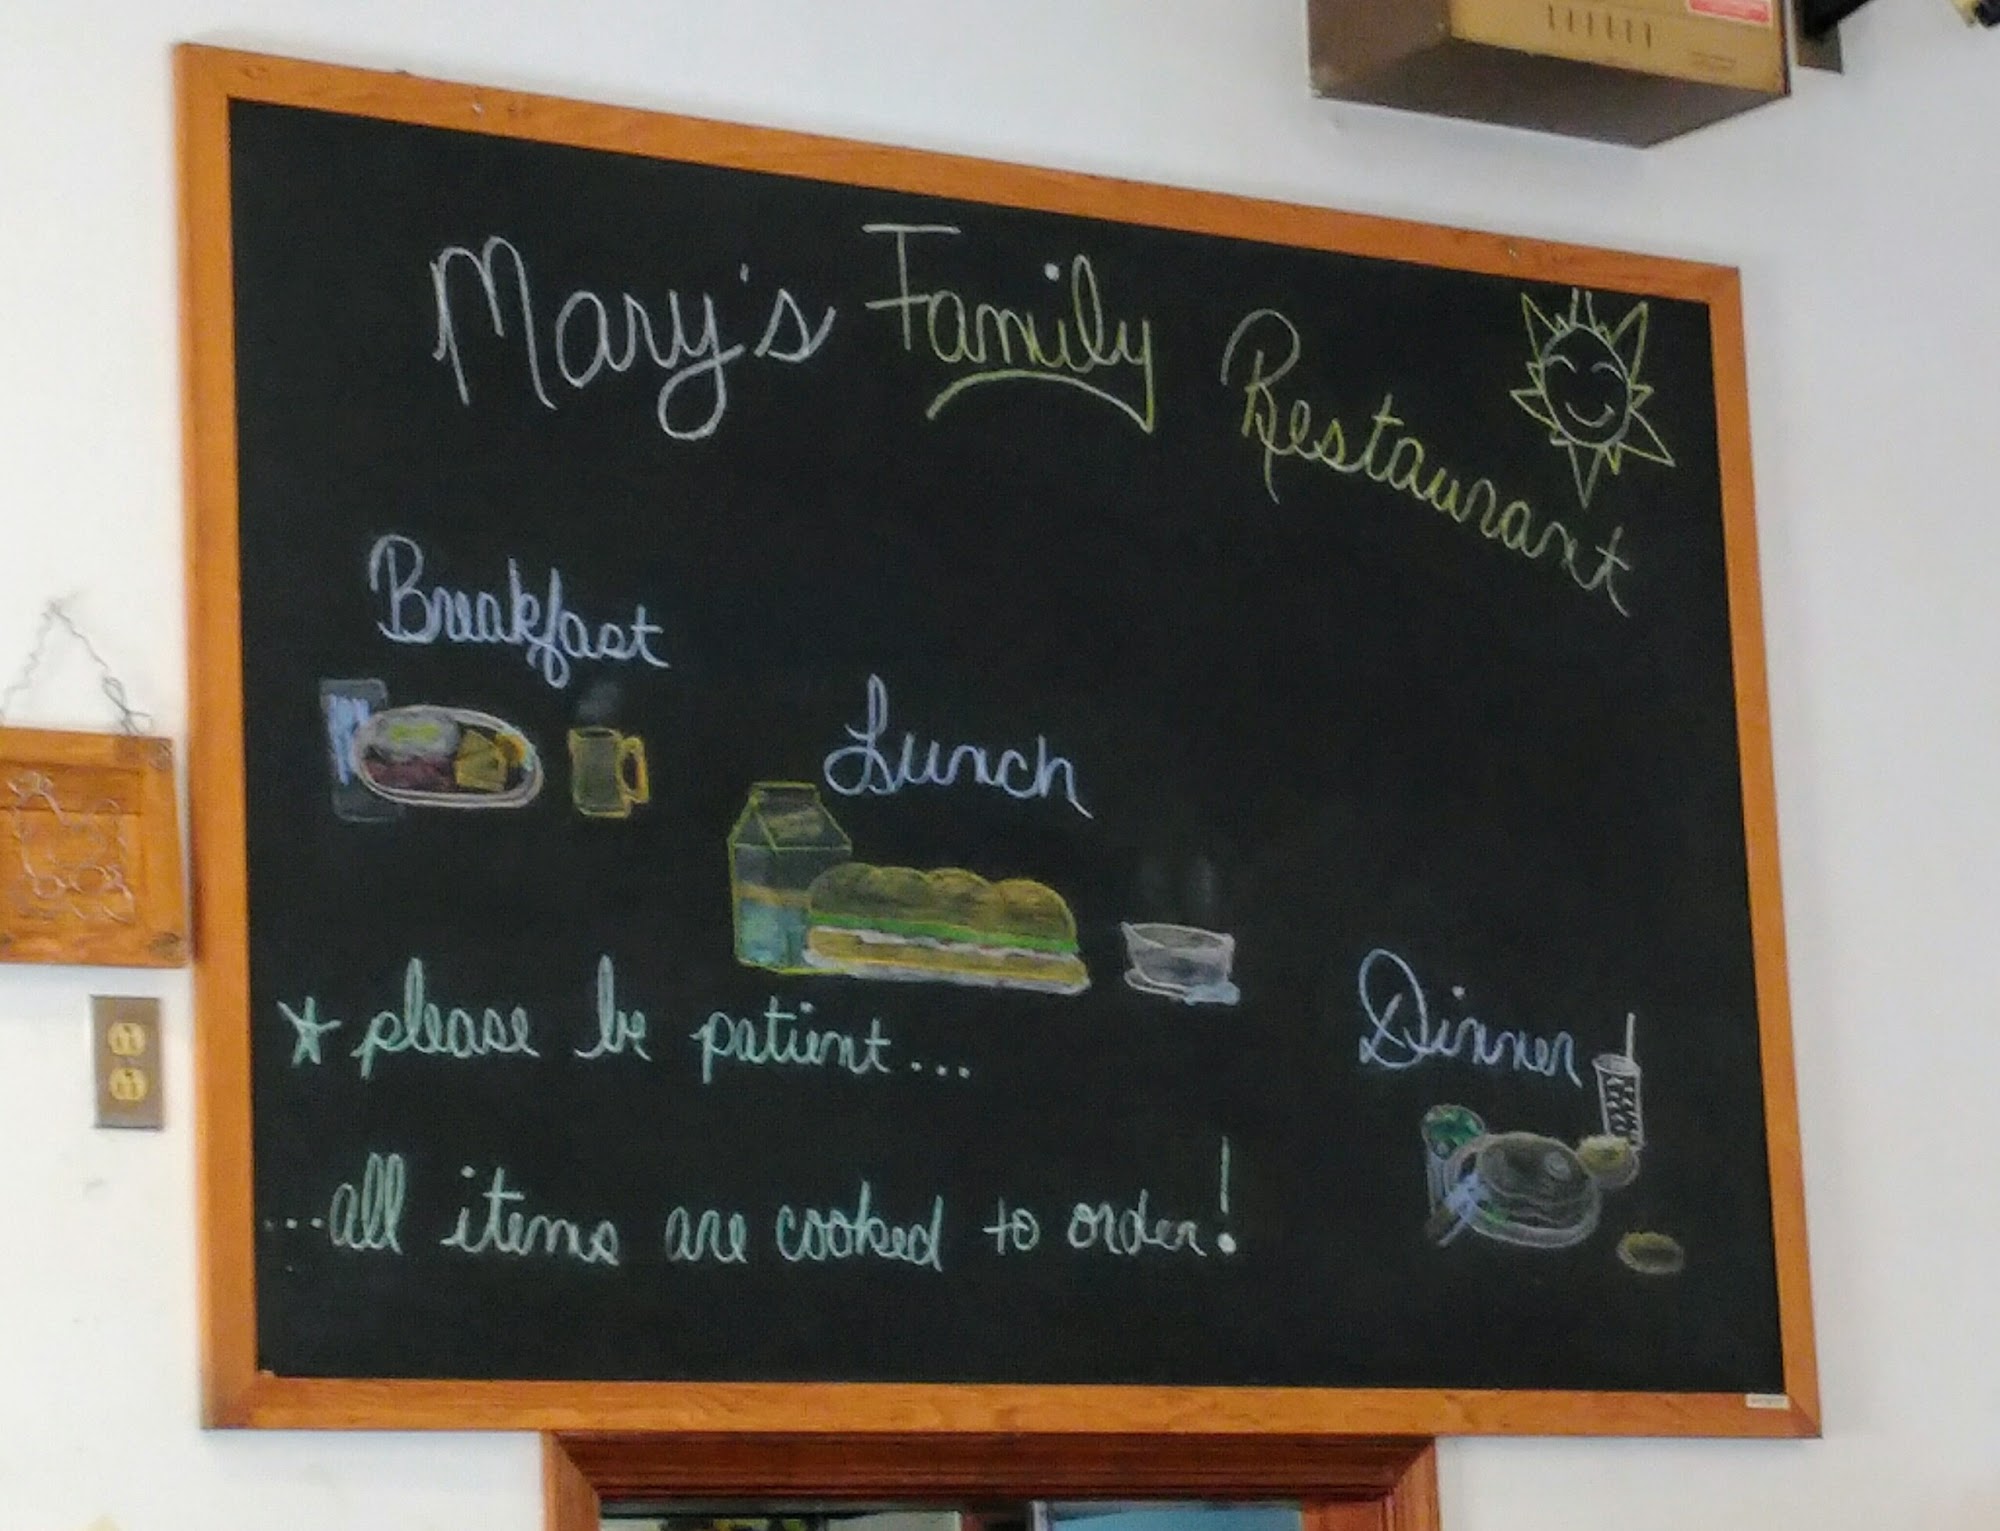 Mary's Family Restaurant
Breakfast
Lunch
Dinner
* please be patient...
...all items are cooked to order!